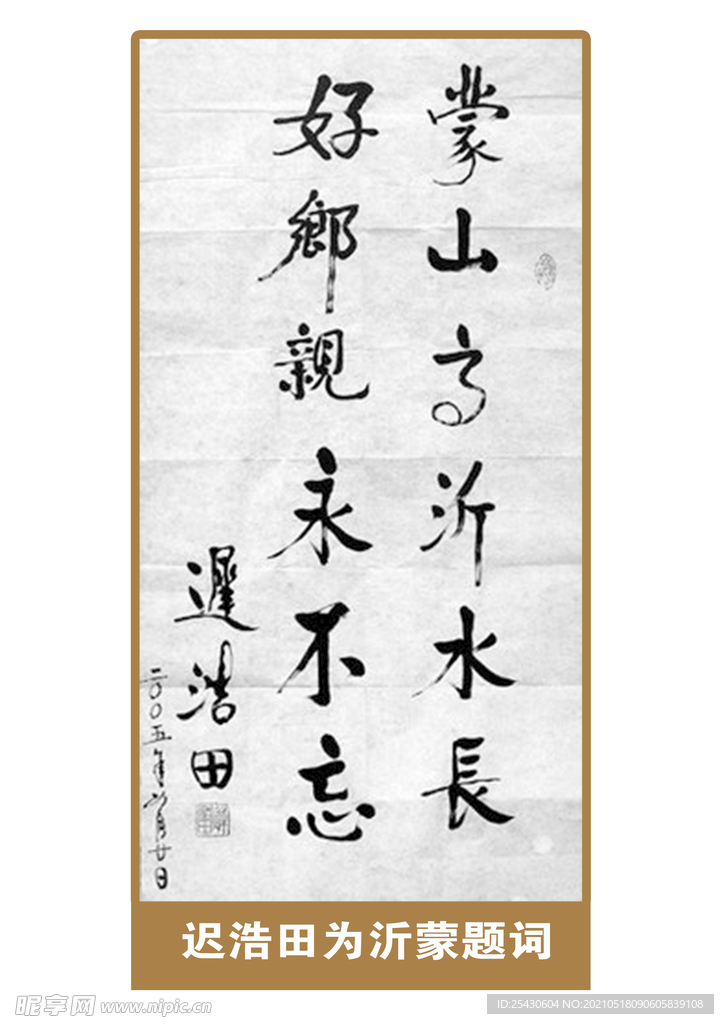 蒙山高沂水長
好鄉親永不忘
遲浩田
二〇〇五年六月廿日
迟浩田为沂蒙题词
昵享网 www.nipic.cn
ID:25430604 NO:20210518090605839108